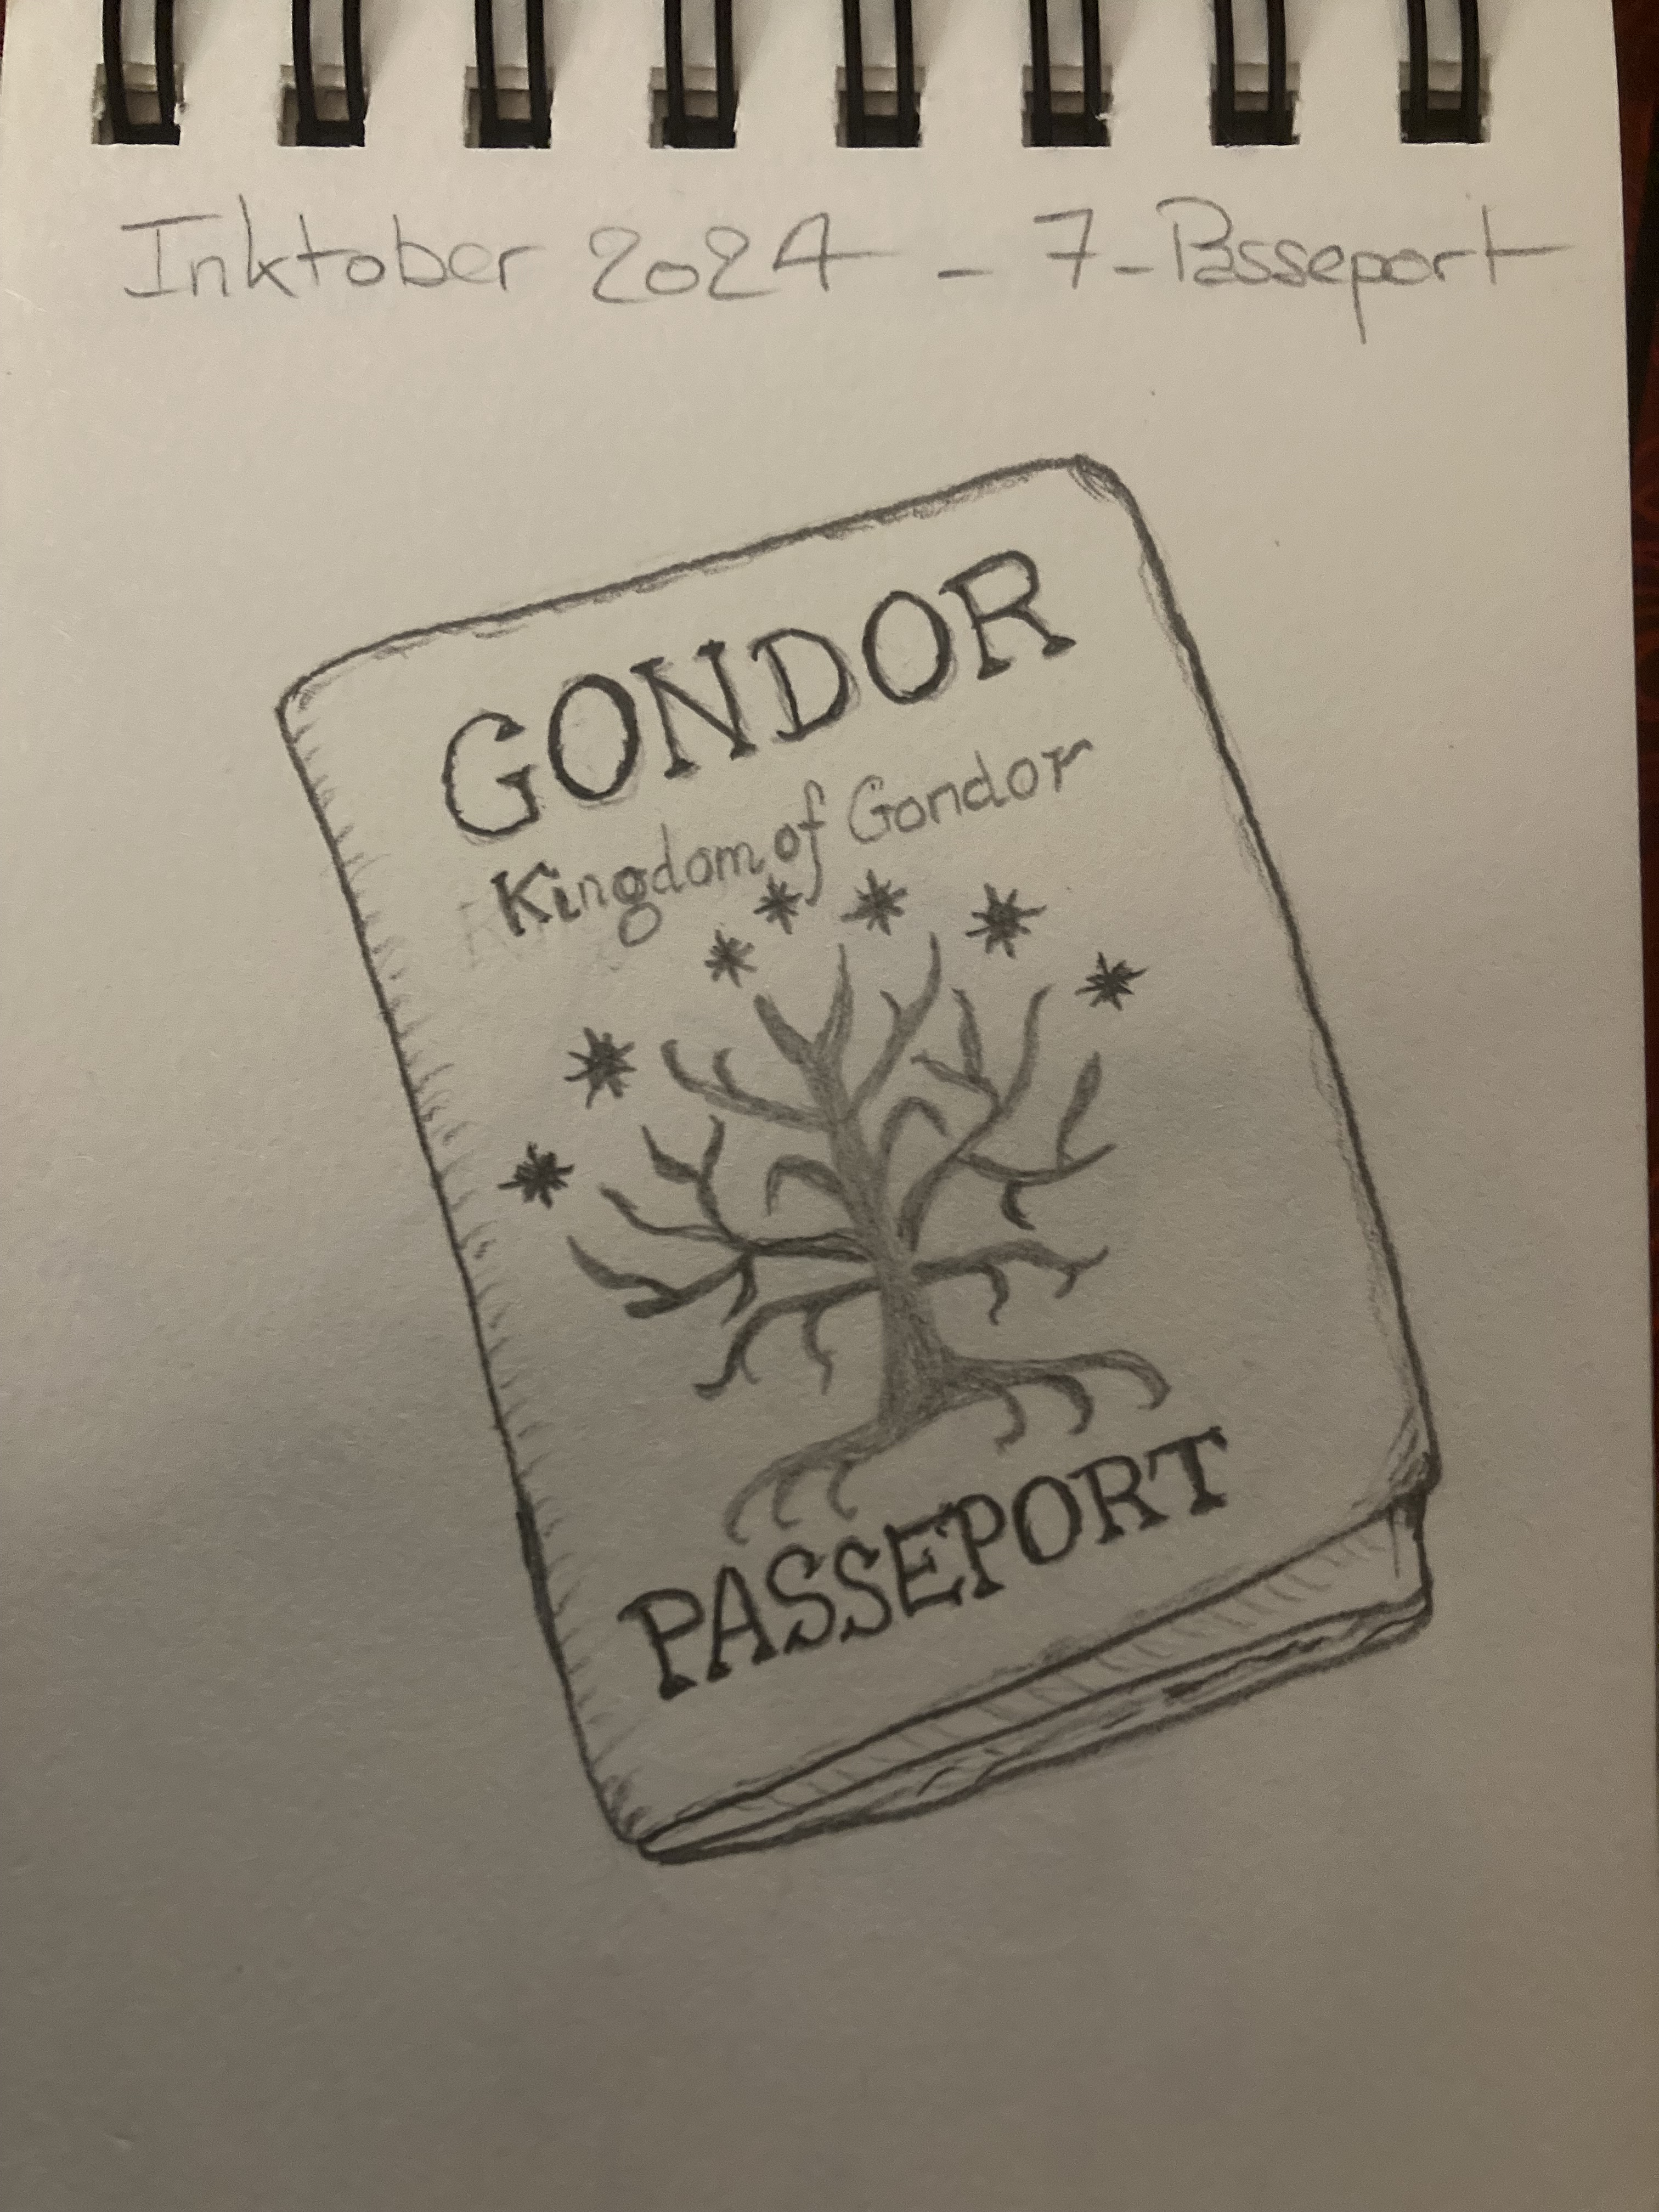 Inktober 2024 - 7 - Passeport
GONDOR
Kingdom of Gondor
PASSEPORT